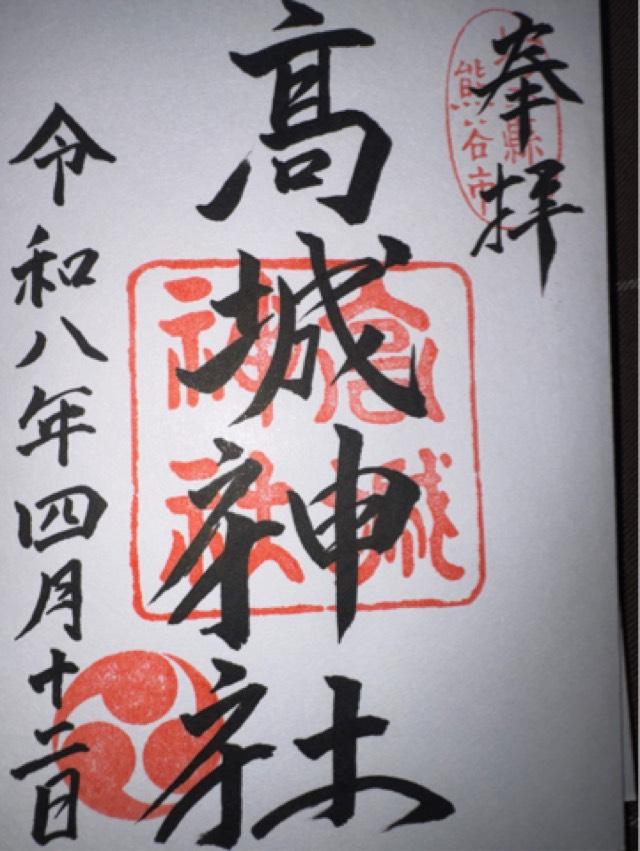 奉拝
埼玉縣
熊谷市
髙城神社
高城
神社
令和八年四月十二日